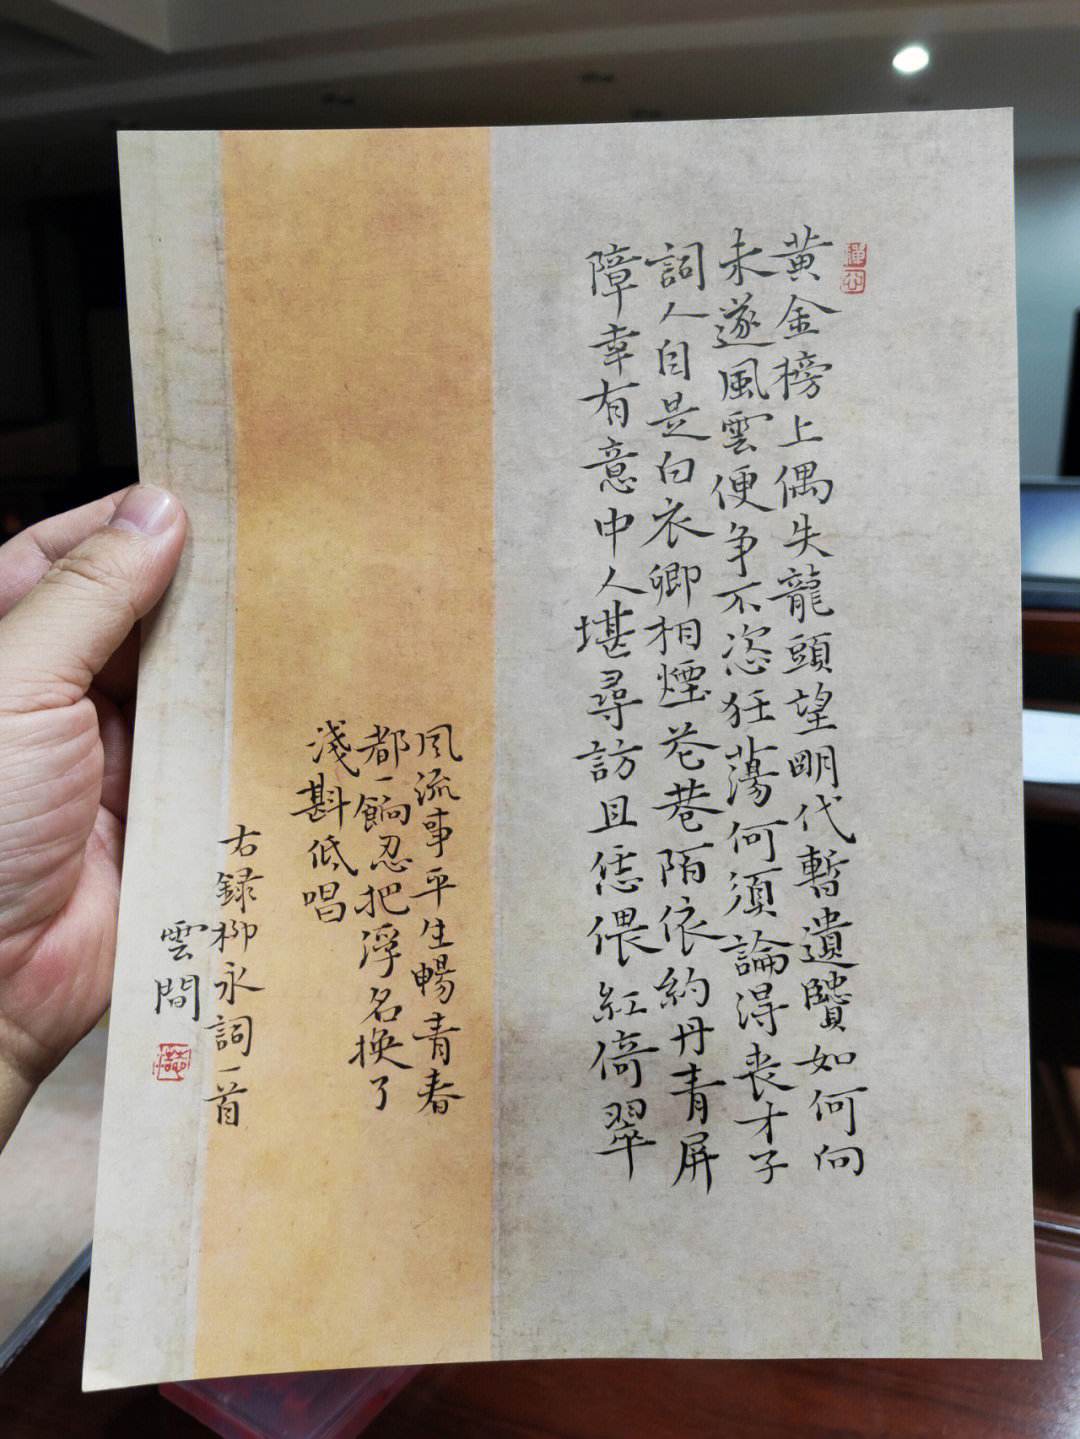 黄金榜上偶失龍頭望明代暫遺賢如何向
未遂風雲便争不恣狂蕩何須論得丧才子
詞人自是白衣卿相煙花巷陌依約丹青屏
障幸有意中人堪尋訪且恁偎紅倚翠
風流事平生暢青春
都一餉忍把浮名換了
淺斟低唱
右録柳永詞一首
雲間